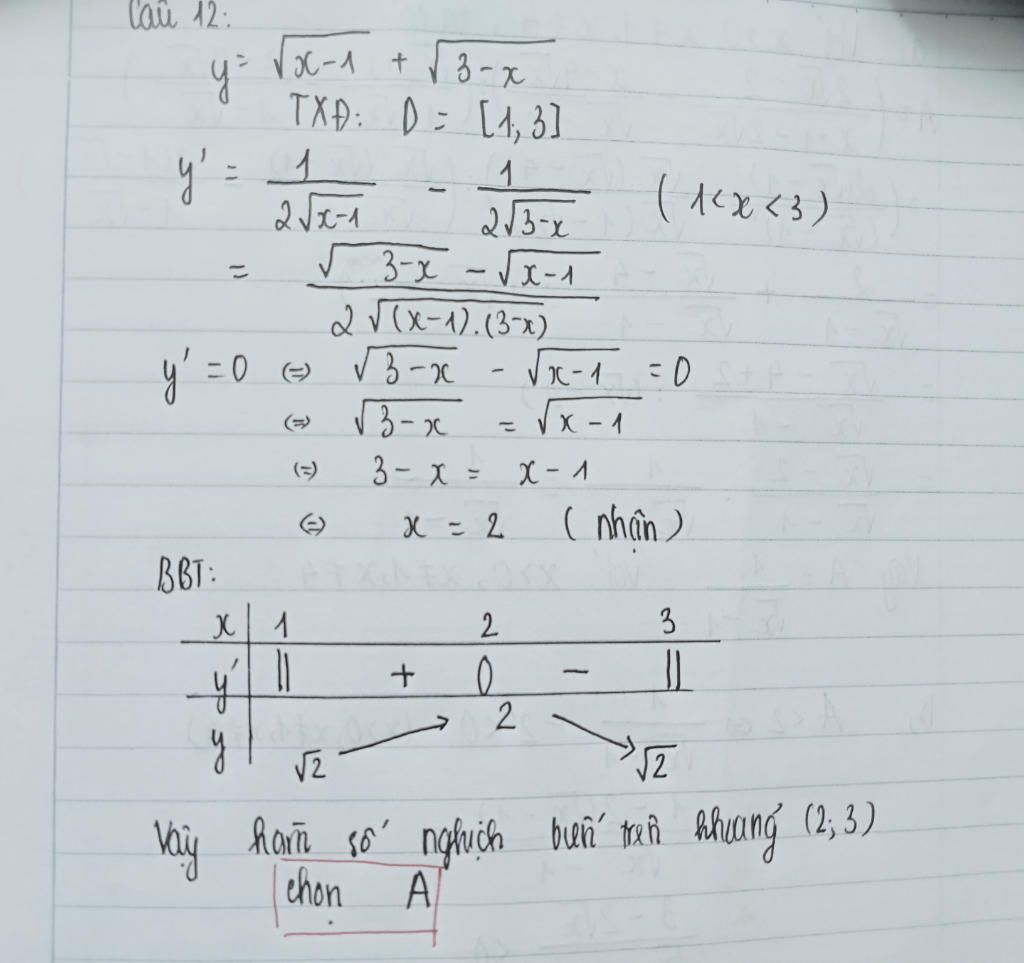 Câu 12:
y = √(x-1) + √(3-x)
TXĐ: D = [1; 3]
y' = 1/(2√(x-1)) - 1/(2√(3-x)) (1<x<3)
= (√(3-x) - √(x-1))/(2√((x-1).(3-x)))
y' = 0 ⇔ √(3-x) - √(x-1) = 0
⇔ √(3-x) = √(x-1)
⇔ 3 - x = x - 1
⇔ x = 2 (nhận)
BBT:
x | 1 2 3
y' | || + 0 - ||
y | √2 ↗ 2 ↘ √2
Vậy hàm số nghịch biến trên khoảng (2; 3)
chọn A